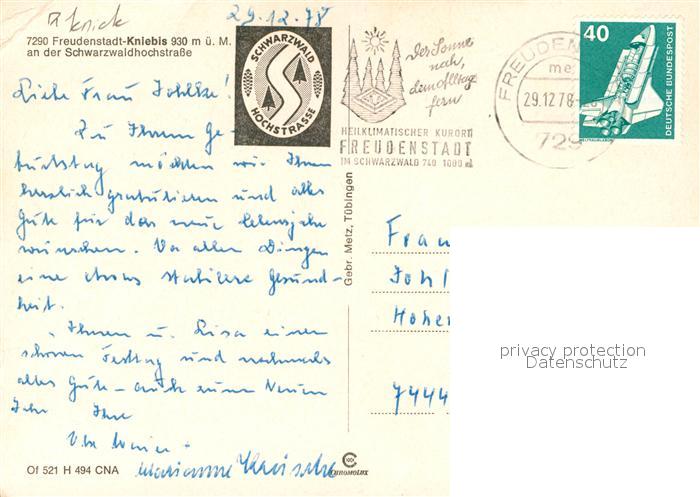 Knick
29.12.78
7290 Freudenstadt-Kniebis 930 m ü. M.
an der Schwarzwaldhochstraße
SCHWARZWALD
HOCHSTRASSE
Der Sonne
nach,
dem Alltag
fern
HEILKLIMATISCHER KURORT
FREUDENSTADT
IM SCHWARZWALD 740 1000 m
FREUDEN
29.12.78
729
40
DEUTSCHE BUNDESPOST
Liebe Frau
Zu Ihrem Ge-
burtstag möchten wir Ihnen
herzlich gratulieren und alles
Gute für das neue Lebensjahr
wünschen. Vor allen Dingen
eine etwas stabilere Gesund-
heit.
Ihnen u. Lisa einen
schönen Festtag und nochmals
alles Gute – auch zum Neuen
Jahr Ihre
Marianne
Gebr. Metz, Tübingen
Frau
Hohen
7444
privacy protection
Datenschutz
Of 521 H 494 CNA
CHROMOLUX